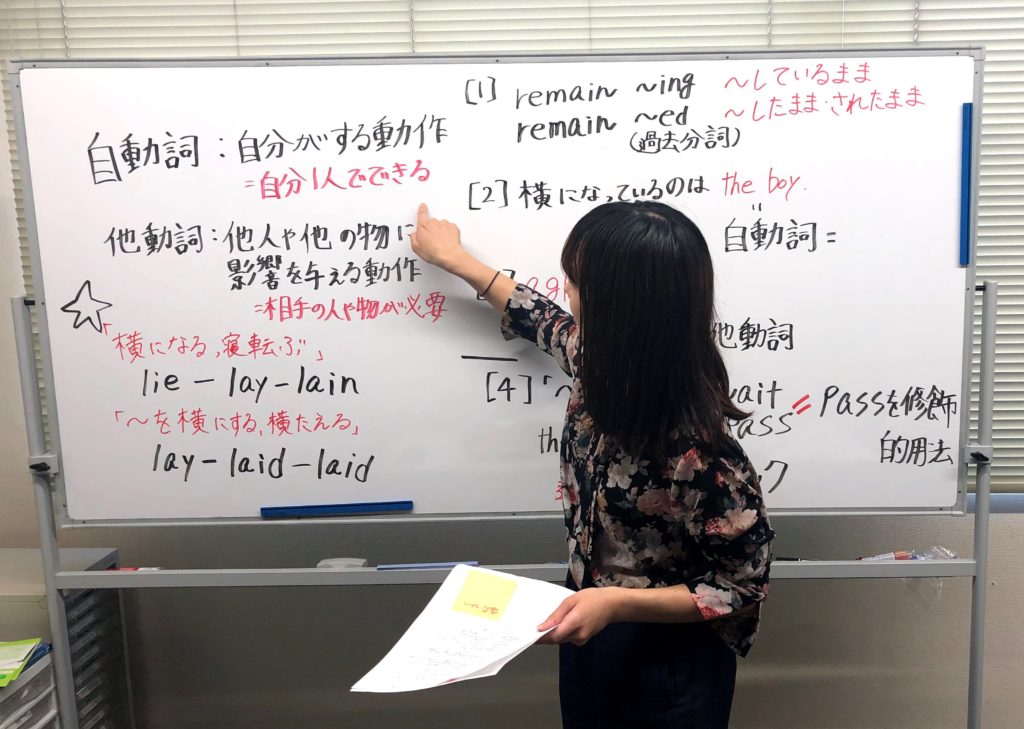 自動詞：自分がする動作
＝自分1人でできる
他動詞：他人や他の物に
影響を与える動作
＝相手の人や物が必要
「横になる，寝転ぶ」
lie－lay－lain
「～を横にする，横たえる」
lay－laid－laid
[1] remain ～ing ～しているまま
remain ～ed ～したまま・されたまま
(過去分詞)
[2] 横になっているのは the boy.
〃
自動詞＝
他動詞
[4]「
wait = passを修飾
pass
的用法
ク